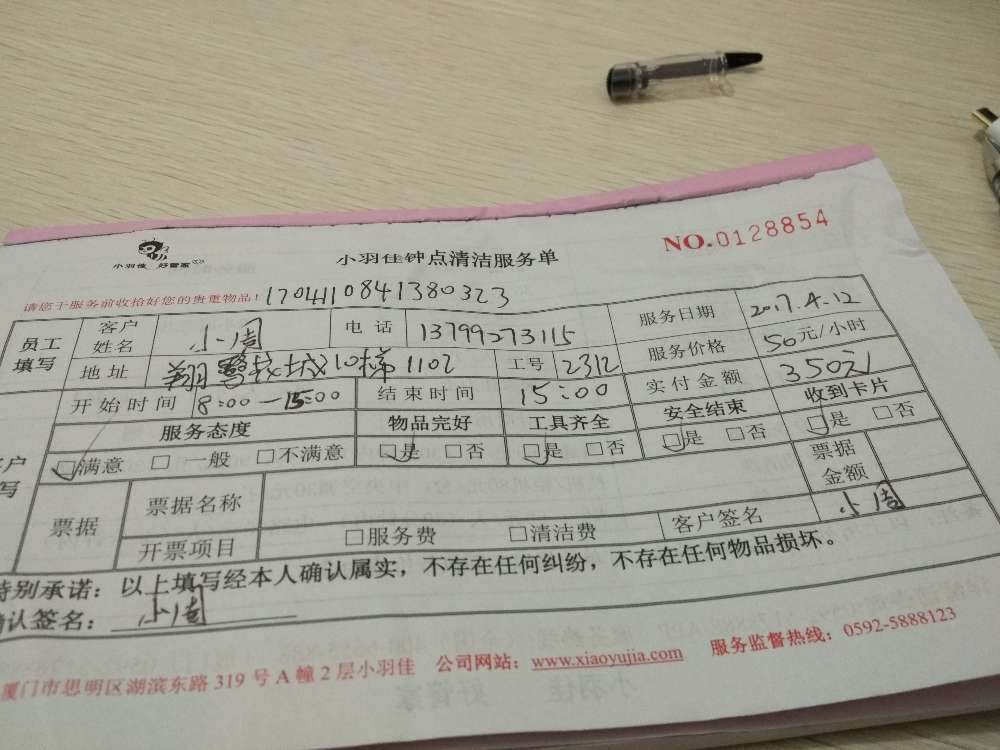 小羽佳 好管家
小羽佳钟点清洁服务单
NO.0128854
请您于服务前收拾好您的贵重物品！ 1704110841380323
员工填写 客户姓名 小周 电话 13799273115 服务日期 2017.4.12
地址 翔鹭花城10梯1102 工号 2312 服务价格 50元/小时
开始时间 8:00—15:00 结束时间 15:00 实付金额 350元
服务态度 物品完好 工具齐全 安全结束 收到卡片
□满意 □一般 □不满意 □是 □否 □是 □否 □是 □否 □是 □否
票据 票据名称 票据金额
开票项目 □服务费 □清洁费 客户签名 小周
特别承诺：以上填写经本人确认属实，不存在任何纠纷，不存在任何物品损坏。
确认签名： 小周
厦门市思明区湖滨东路319号A幢2层小羽佳 公司网站：www.xiaoyujia.com 服务监督热线：0592-5888123